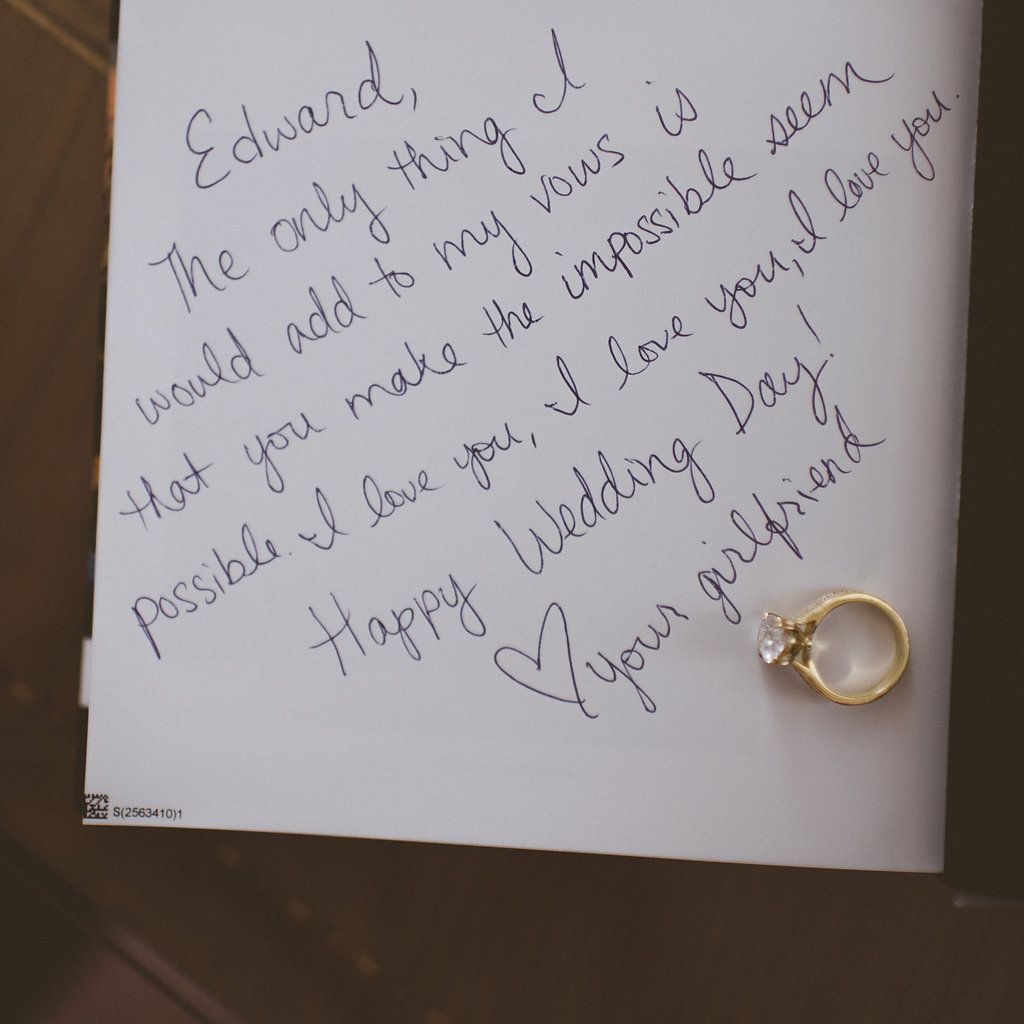 Edward,
The only thing I
would add to my vows is
that you make the impossible seem
possible. I love you, I love you, I love you.
Happy Wedding Day!
♡ your girlfriend
S(2563410)1